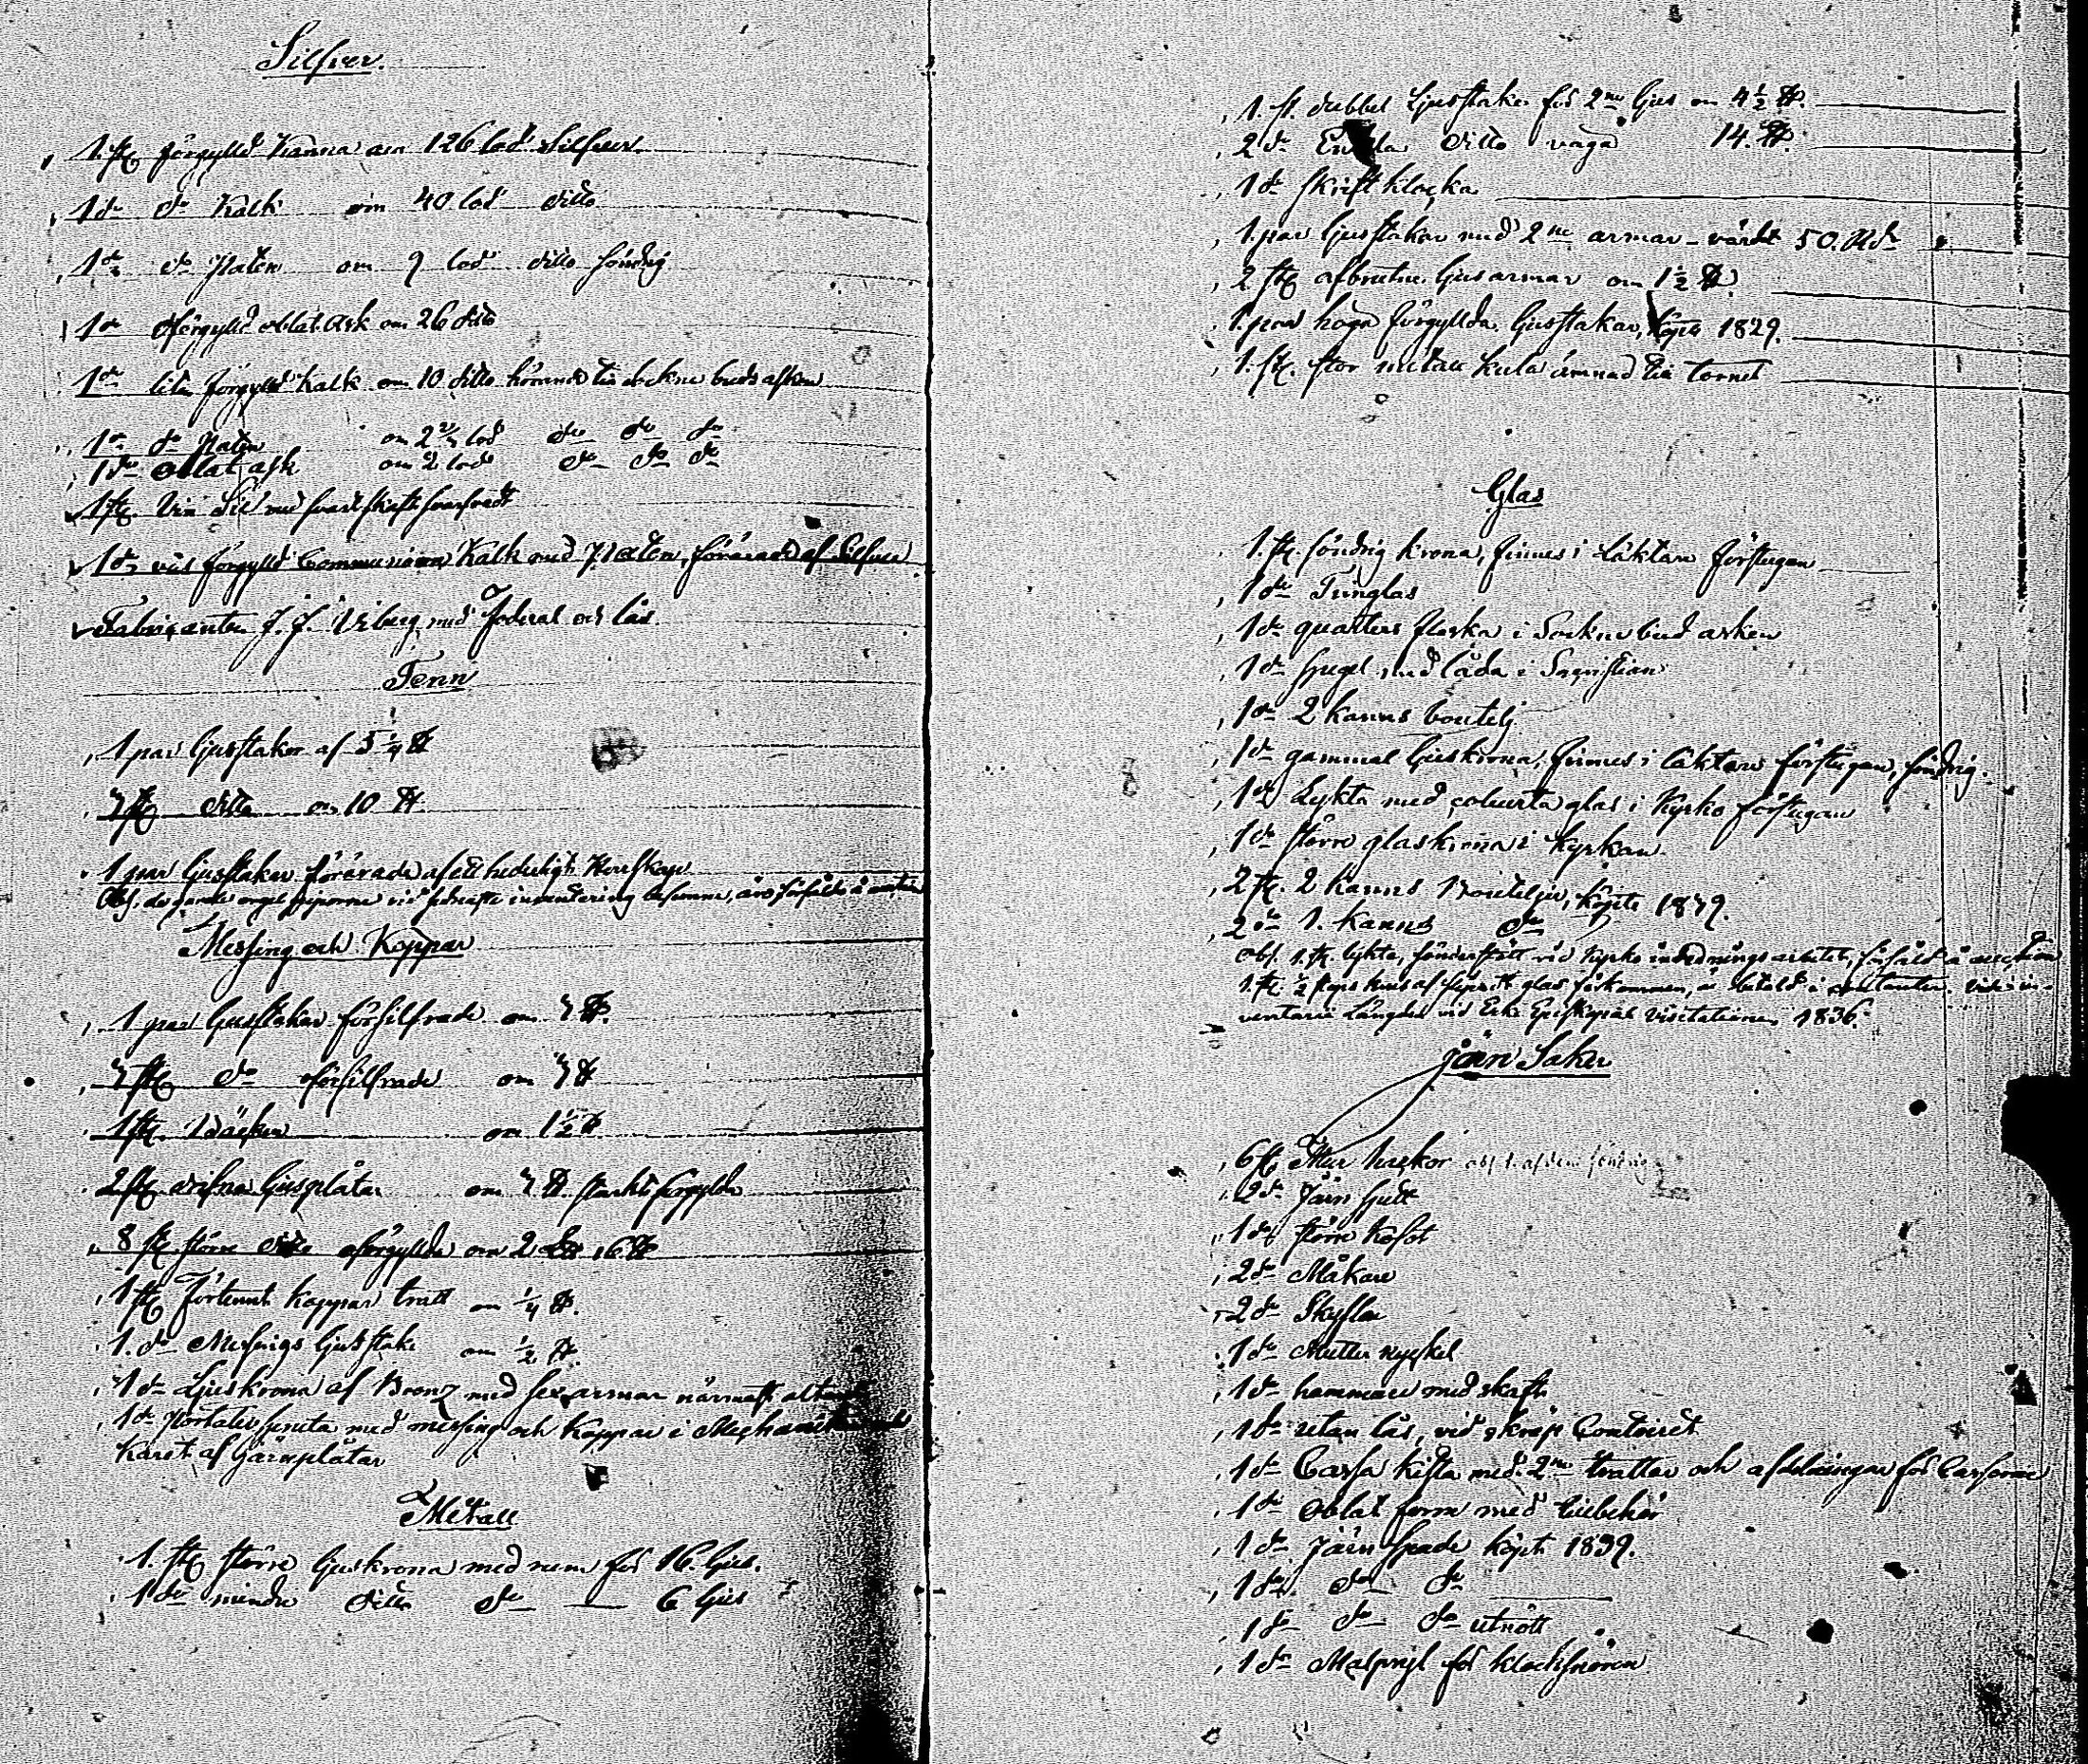 Silfver.
1. st. förgylld Kanna om 126 lod Silfver.
1 do do Kalk om 40 lod ditto
1 do do Paten om 9 lod ditto söndrig
1 do oförgylld oblat Ask om 26 ditto
1 do liten förgylld Kalk om 10 ditto hörande till sockne buds asken
1 do do Paten om 2 lod do do do
1 do oblat ask om 2 lod do do do
1 st. Vin Sil med svart skaft
1 do förgylld Communions Kalk med Paten, förärade af Silfver
Fabriqanten J. J. Viberg med Foderal och lås.
Tenn
1 par ljusstakar af 5 1/4 ℔
st ditto om 10 ℔
1 par ljusstakar förärade af ett hederligt Herrskap
Obs. de gamla orgel piporna vid sednaste inventering befunne, äro försålde å auction
Messing och Koppar
1 par ljusstakar försilfrade om ℔.
st do oförsilfrade om ℔
1 st. Bäcken om 1 1/2 ℔
2 st. drifna ljusplåtar om ℔ förgyllda
8 st. större ditto oförgyllda om 2 L℔ 16 ℔
1 st Förtennt koppar tratt om 1/4 ℔.
1. do Messings ljusstake om 1/2 ℔.
1 do Ljuskrona af Bronz med sex armar närmast altaret
1 do Portativ spruta med messing och Koppar i
Karet af Järnplåtar
Metall
1. st större ljuskrona med rum för 16. ljus.
1 do mindre ditto do — 6 ljus
1. st. dubbel Ljusstake för 2ne ljus om 4 1/2 ℔.
2 do Enkla ditto väga 14. ℔.
1 do skrift klocka
1. par ljusstakar med 2ne armar - värde 50. Rdr
2 st afbrutne ljusarmar om 1 1/2 ℔
1. par höga förgyllda ljusstakar, köpte 1829.
1. st. stor metall kula ämnad till tornet
Glas
1. st. söndrig krona, finnes i Läktare förstugan
1 do Timglas
1 do quarters flaska i Sockne bud asken
1 do spegel med låda i Sacristian
1 do 2 kanns boutelj.
1 do gammal ljuskrona, finnes i läktare förstugan, söndrig.
1 do Lykta med coleurta glas i Kyrko förstugan
1 do större glaskrona i Kyrkan.
2 st. 2 kanns Bouteljer, köpte 1839.
2 do 1. kanns do
obs. 1. st. lykta, sönderstött vid Kyrko inredningsarbetet, försåld å auction
1. st. 1/2 stops krus af glas förkommen, är betald i contanter. vide in-
ventarii Längden vid Erke Episkopal Visitationen 1836.
Järn Saker
6 st Mur hackor
2 do Järn spett
1 do större kofot
2 do Måkare
2 do Skyfflar
1 do Mutter nyckel
1 do hammare med skaft
1 do utan lås, vid skråp Contoiret
1 do Cassa kista med 2ne trattar och afdelningar för Cassorne
1 do oblat form med tillbehör
1 do Järn Spade köpt 1839.
1 do do do
1 do do do utnött
1 do för klocksnören